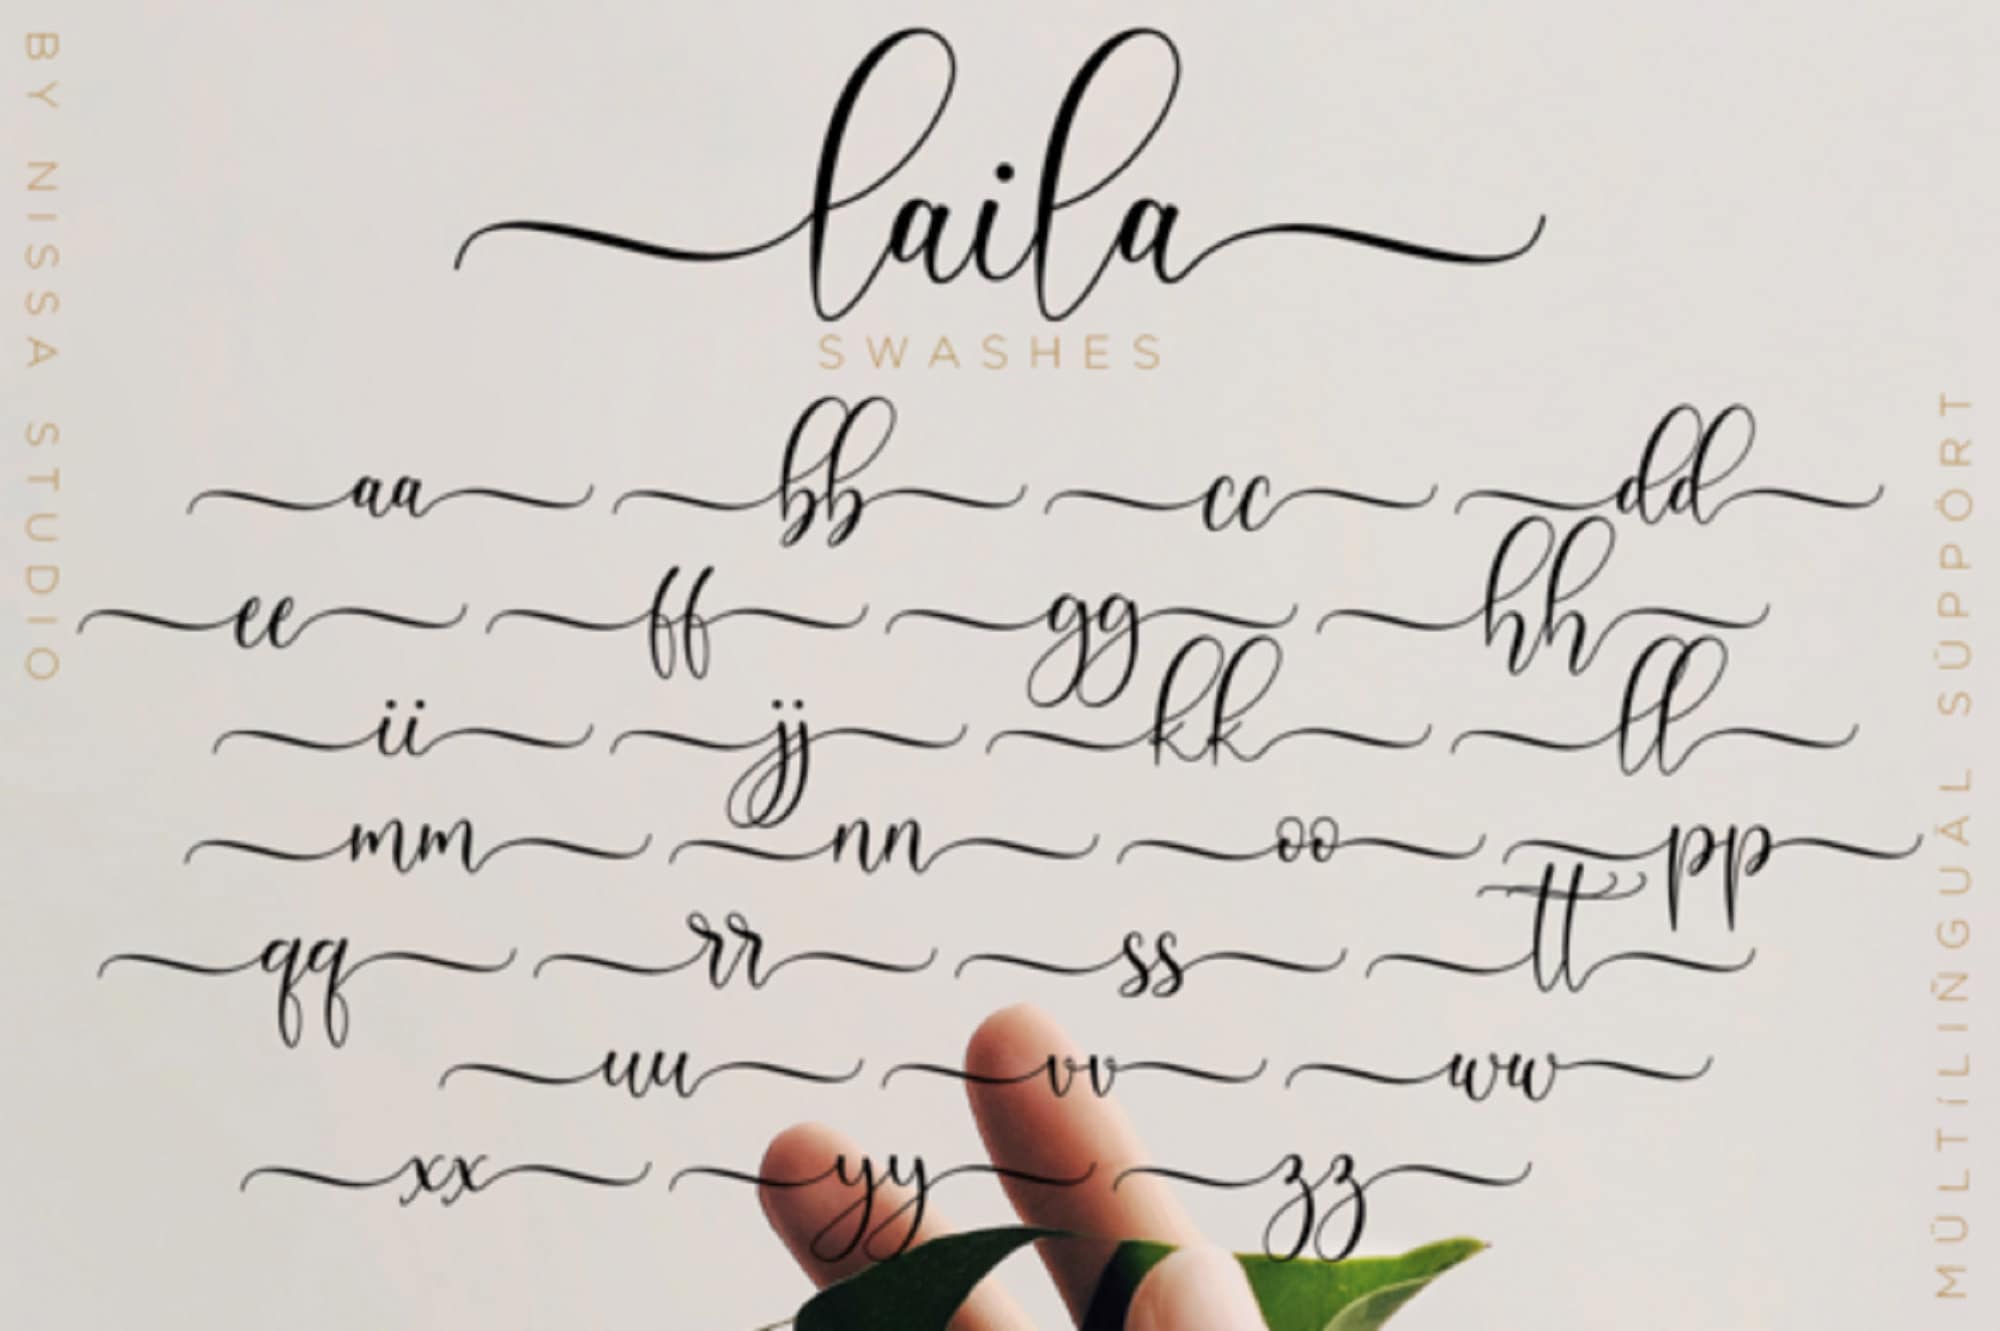 BY NISSA STUDIO
laila
SWASHES
aa bb cc dd
ee ff gg hh
ii jj kk ll
mm nn oo pp
qq rr ss tt
uu vv ww
xx yy zz
MÜLTÍLIÑGUÄL SÜPPÖRT